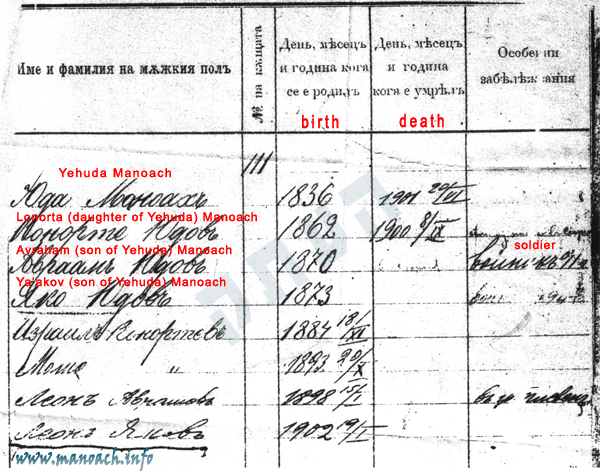 Име и фамилия на мѫжкия полъ
№ на кѫщата
День, мѣсецъ и година кога се е родилъ
birth
День, мѣсецъ и година кога е умрѣлъ
death
Особенни забѣлѣжвания
111
Yehuda Manoach
Юда Маноахъ 1836 1901 29/VI
Lonorta (daughter of Yehuda) Manoach
Конорте Юдовъ 1862 1900 8/IX
Avraham (son of Yehuda) Manoach
soldier
Авраамъ Юдовъ 1870 войникъ
Ya'akov (son of Yehuda) Manoach
Яко Юдовъ 1873
Израилъ Конортевъ 1884 18/XI
Мошо " 1893 20/X
Леонъ Аврамовъ 1898 15/I
Леонъ Яковъ 1902 19/II
www.manoach.info